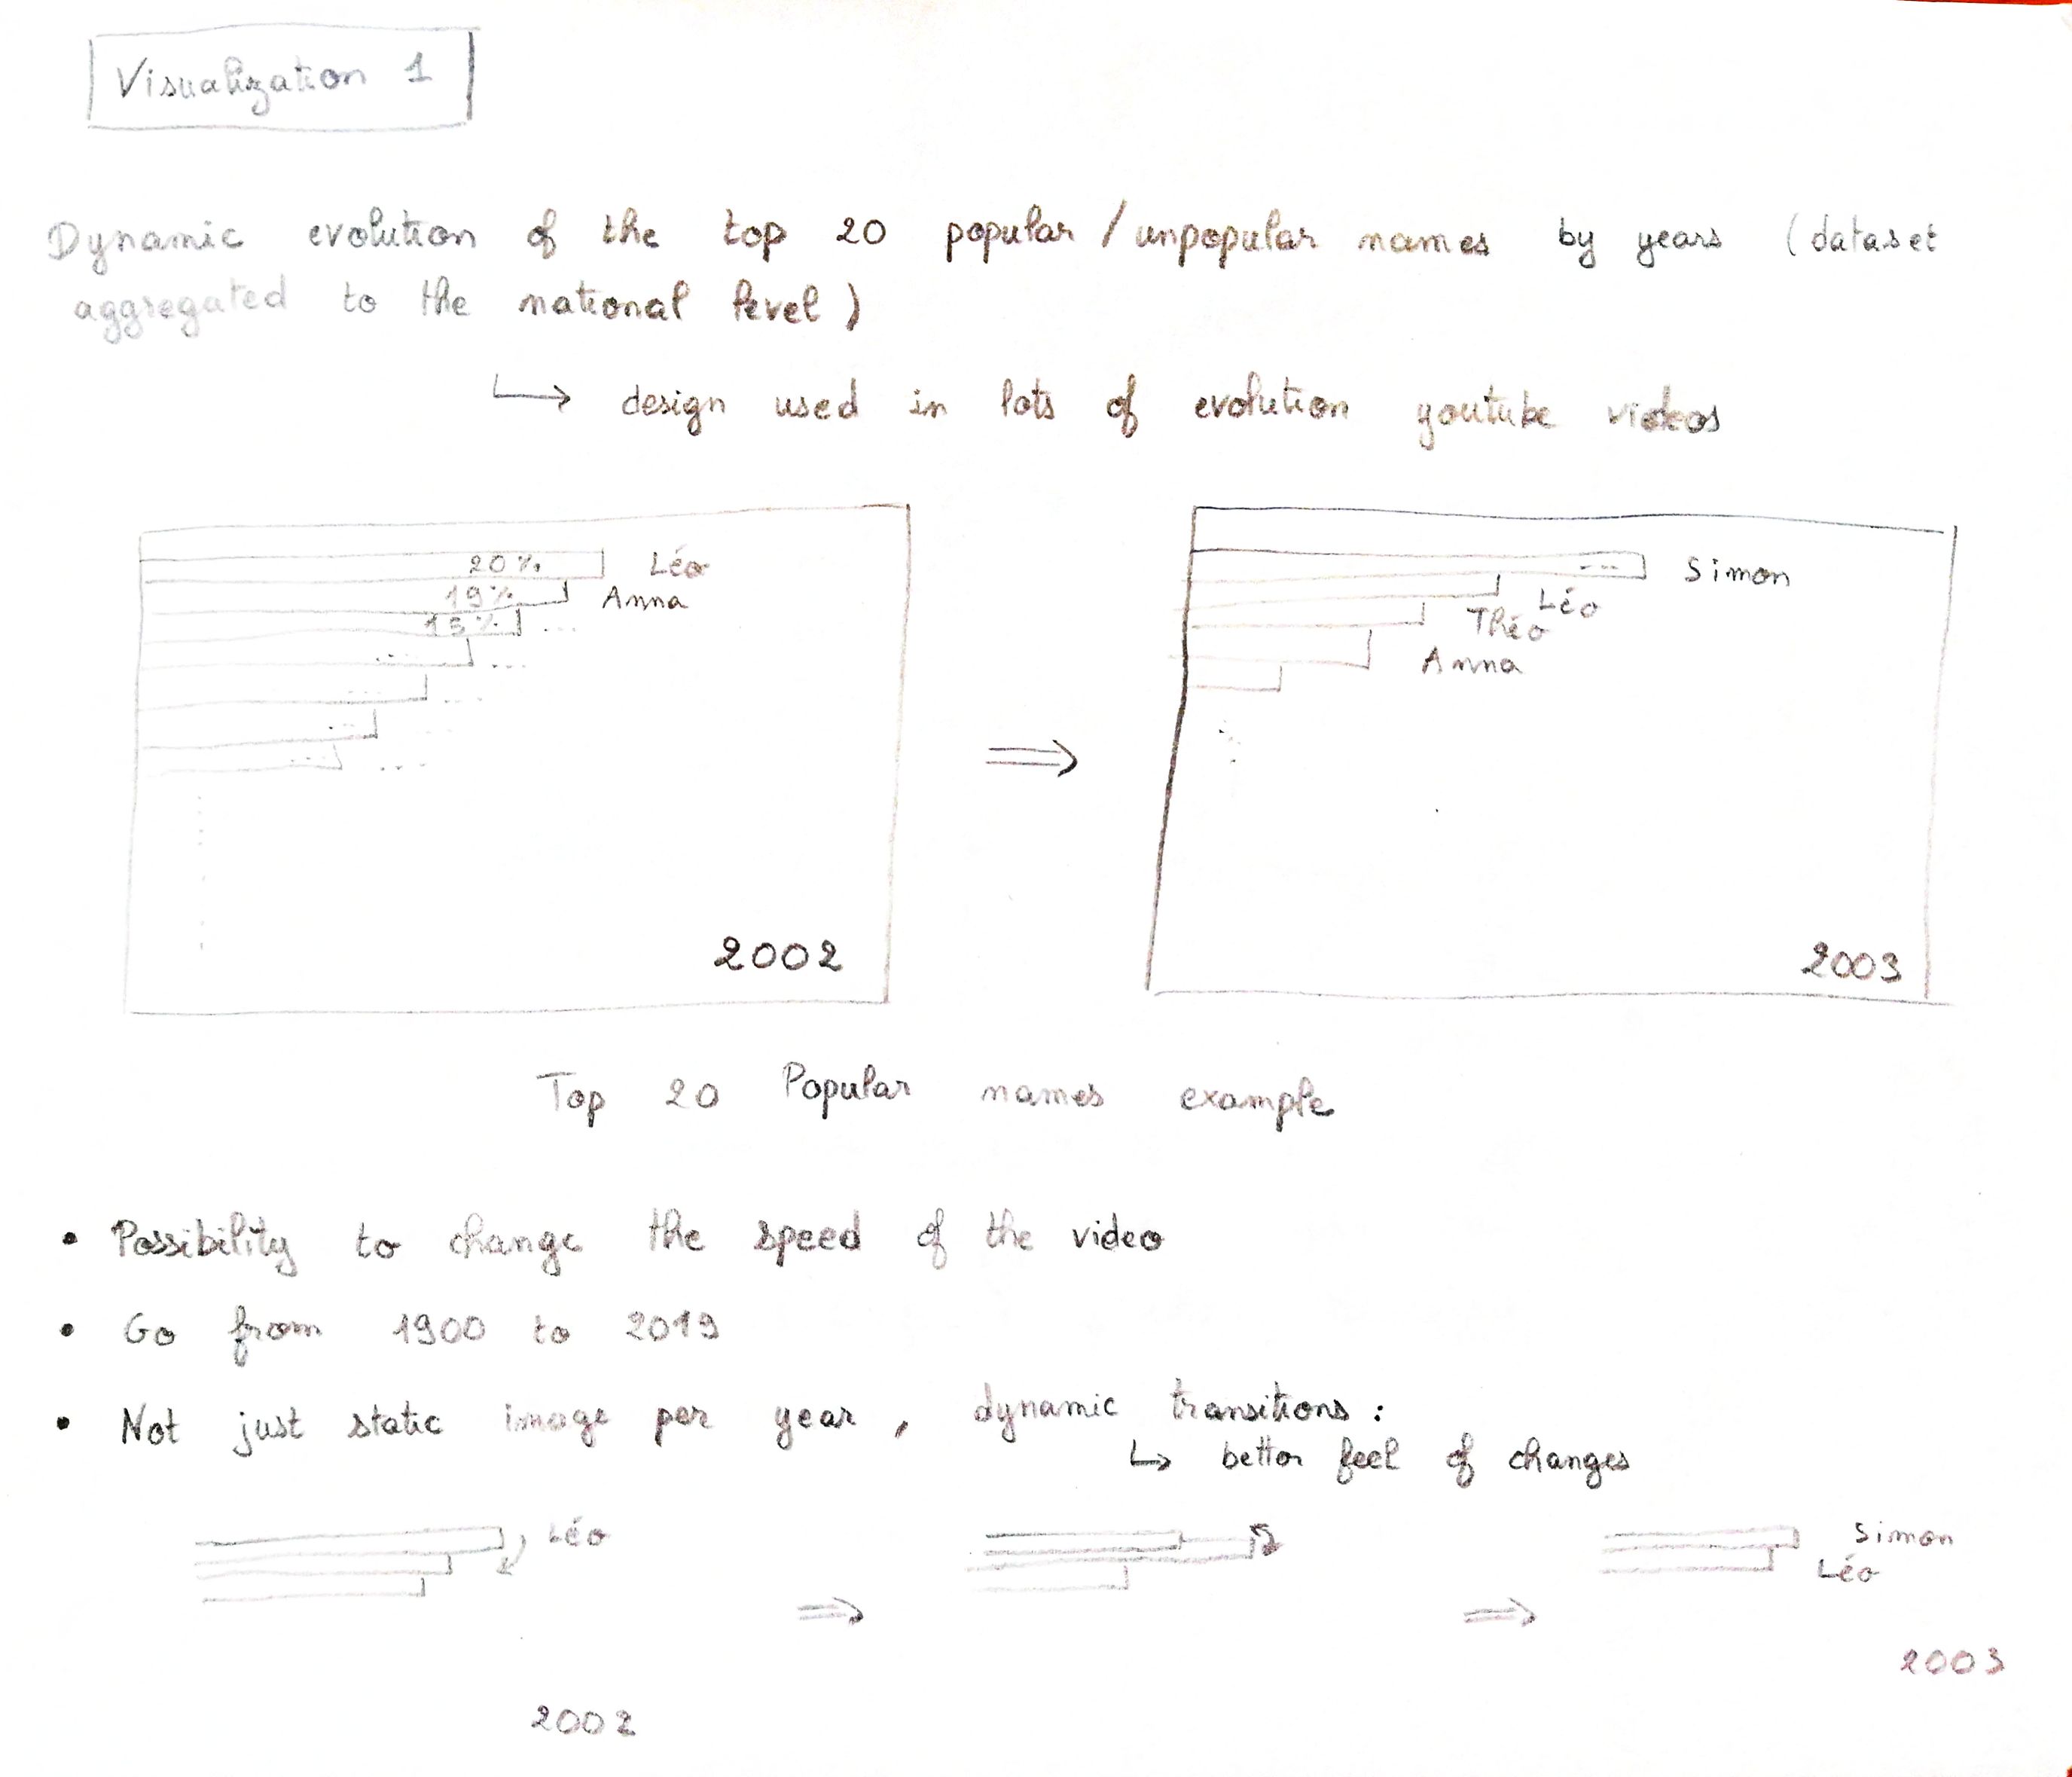 Visualization 1
Dynamic evolution of the top 20 popular / unpopular names by years (dataset
aggregated to the national level)
↳ design used in lots of evolution youtube videos
20 %
Léo
19 %
Anna
15 %
...
2002
⇒
...
Simon
Léo
Théo
Anna
2003
Top 20 Popular names example
• Possibility to change the speed of the video
• Go from 1900 to 2019
• Not just static image per year, dynamic transitions :
↳ better feel of changes
Léo
2002
⇒
⇒
Simon
Léo
2003